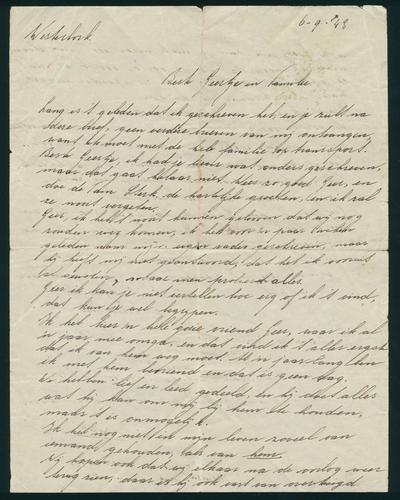 Westerbork 6-9-'43
Beste Geertje en Familie.
Lang is 't geleden dat ik geschreven heb, en je zult na
deze brief, geen verdere brieven van mij ontvangen,
want ik moet met de hele familie op transport.
Beste Geertje, ik had je liever wat anders geschreven,
maar dat gaat helaas niet. Wees zo goed Geer, en
doe de fam. Sterk de hartelijke groeten, en ik zal
ze nooit vergeten.
Geer, ik heb 't nooit kunnen geloven dat wij nog
zouden weg komen, ik heb voor een paar weken
geleden naar mijn eigen vader geschreven, maar
hij heeft mij niet geantwoord, dat heb ik vooruit
al geweten, maar men probeert alles.
Geer ik kan je niet vertellen hoe erg of ik 't vind,
dat kun je wel begrijpen.
Ik heb hier 'n hele goeie vriend Geer, waar ik al
'n jaar mee omga, en dat vind ik 't aller ergste
dat ik van hem weg moet. Al 'n jaar lang ben
ik met hem bevriend en dat is geen dag.
We hebben lief en leed gedeeld, en hij doet alles
wat hij kan om mij bij hem te houden,
maar 't is onmogelijk.
Ik heb nog nooit in mijn leven zoveel van
iemand gehouden, als van hem.
Wij hopen ook dat wij elkaar na de oorlog weer
terug zien, daar is hij ook vast van overtuigd